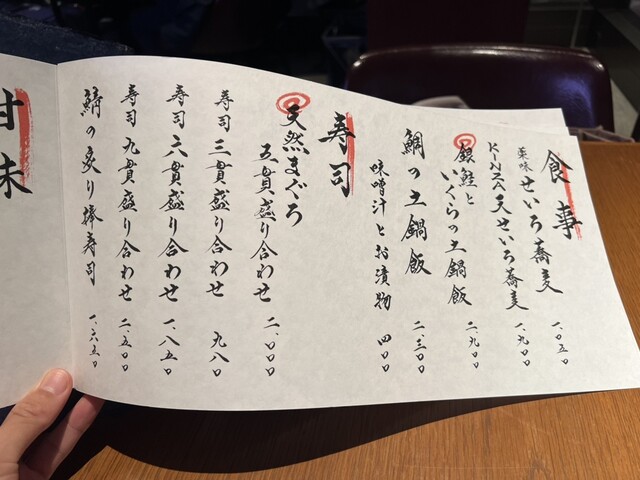 食事
薬味 せいろ蕎麦 一、〇五〇
KINZA天せいろ蕎麦 一、九〇〇
銀鮭と
いくらの土鍋飯 二、九〇〇
鯛の土鍋飯 二、三〇〇
味噌汁とお漬物 四〇〇
寿司
天然まぐろ
五貫盛り合わせ 二、〇〇〇
寿司 三貫盛り合わせ 九八〇
寿司 六貫盛り合わせ 一、八五〇
寿司 九貫盛り合わせ 二、五〇〇
鯖の炙り棒寿司 一、六五〇
甘味